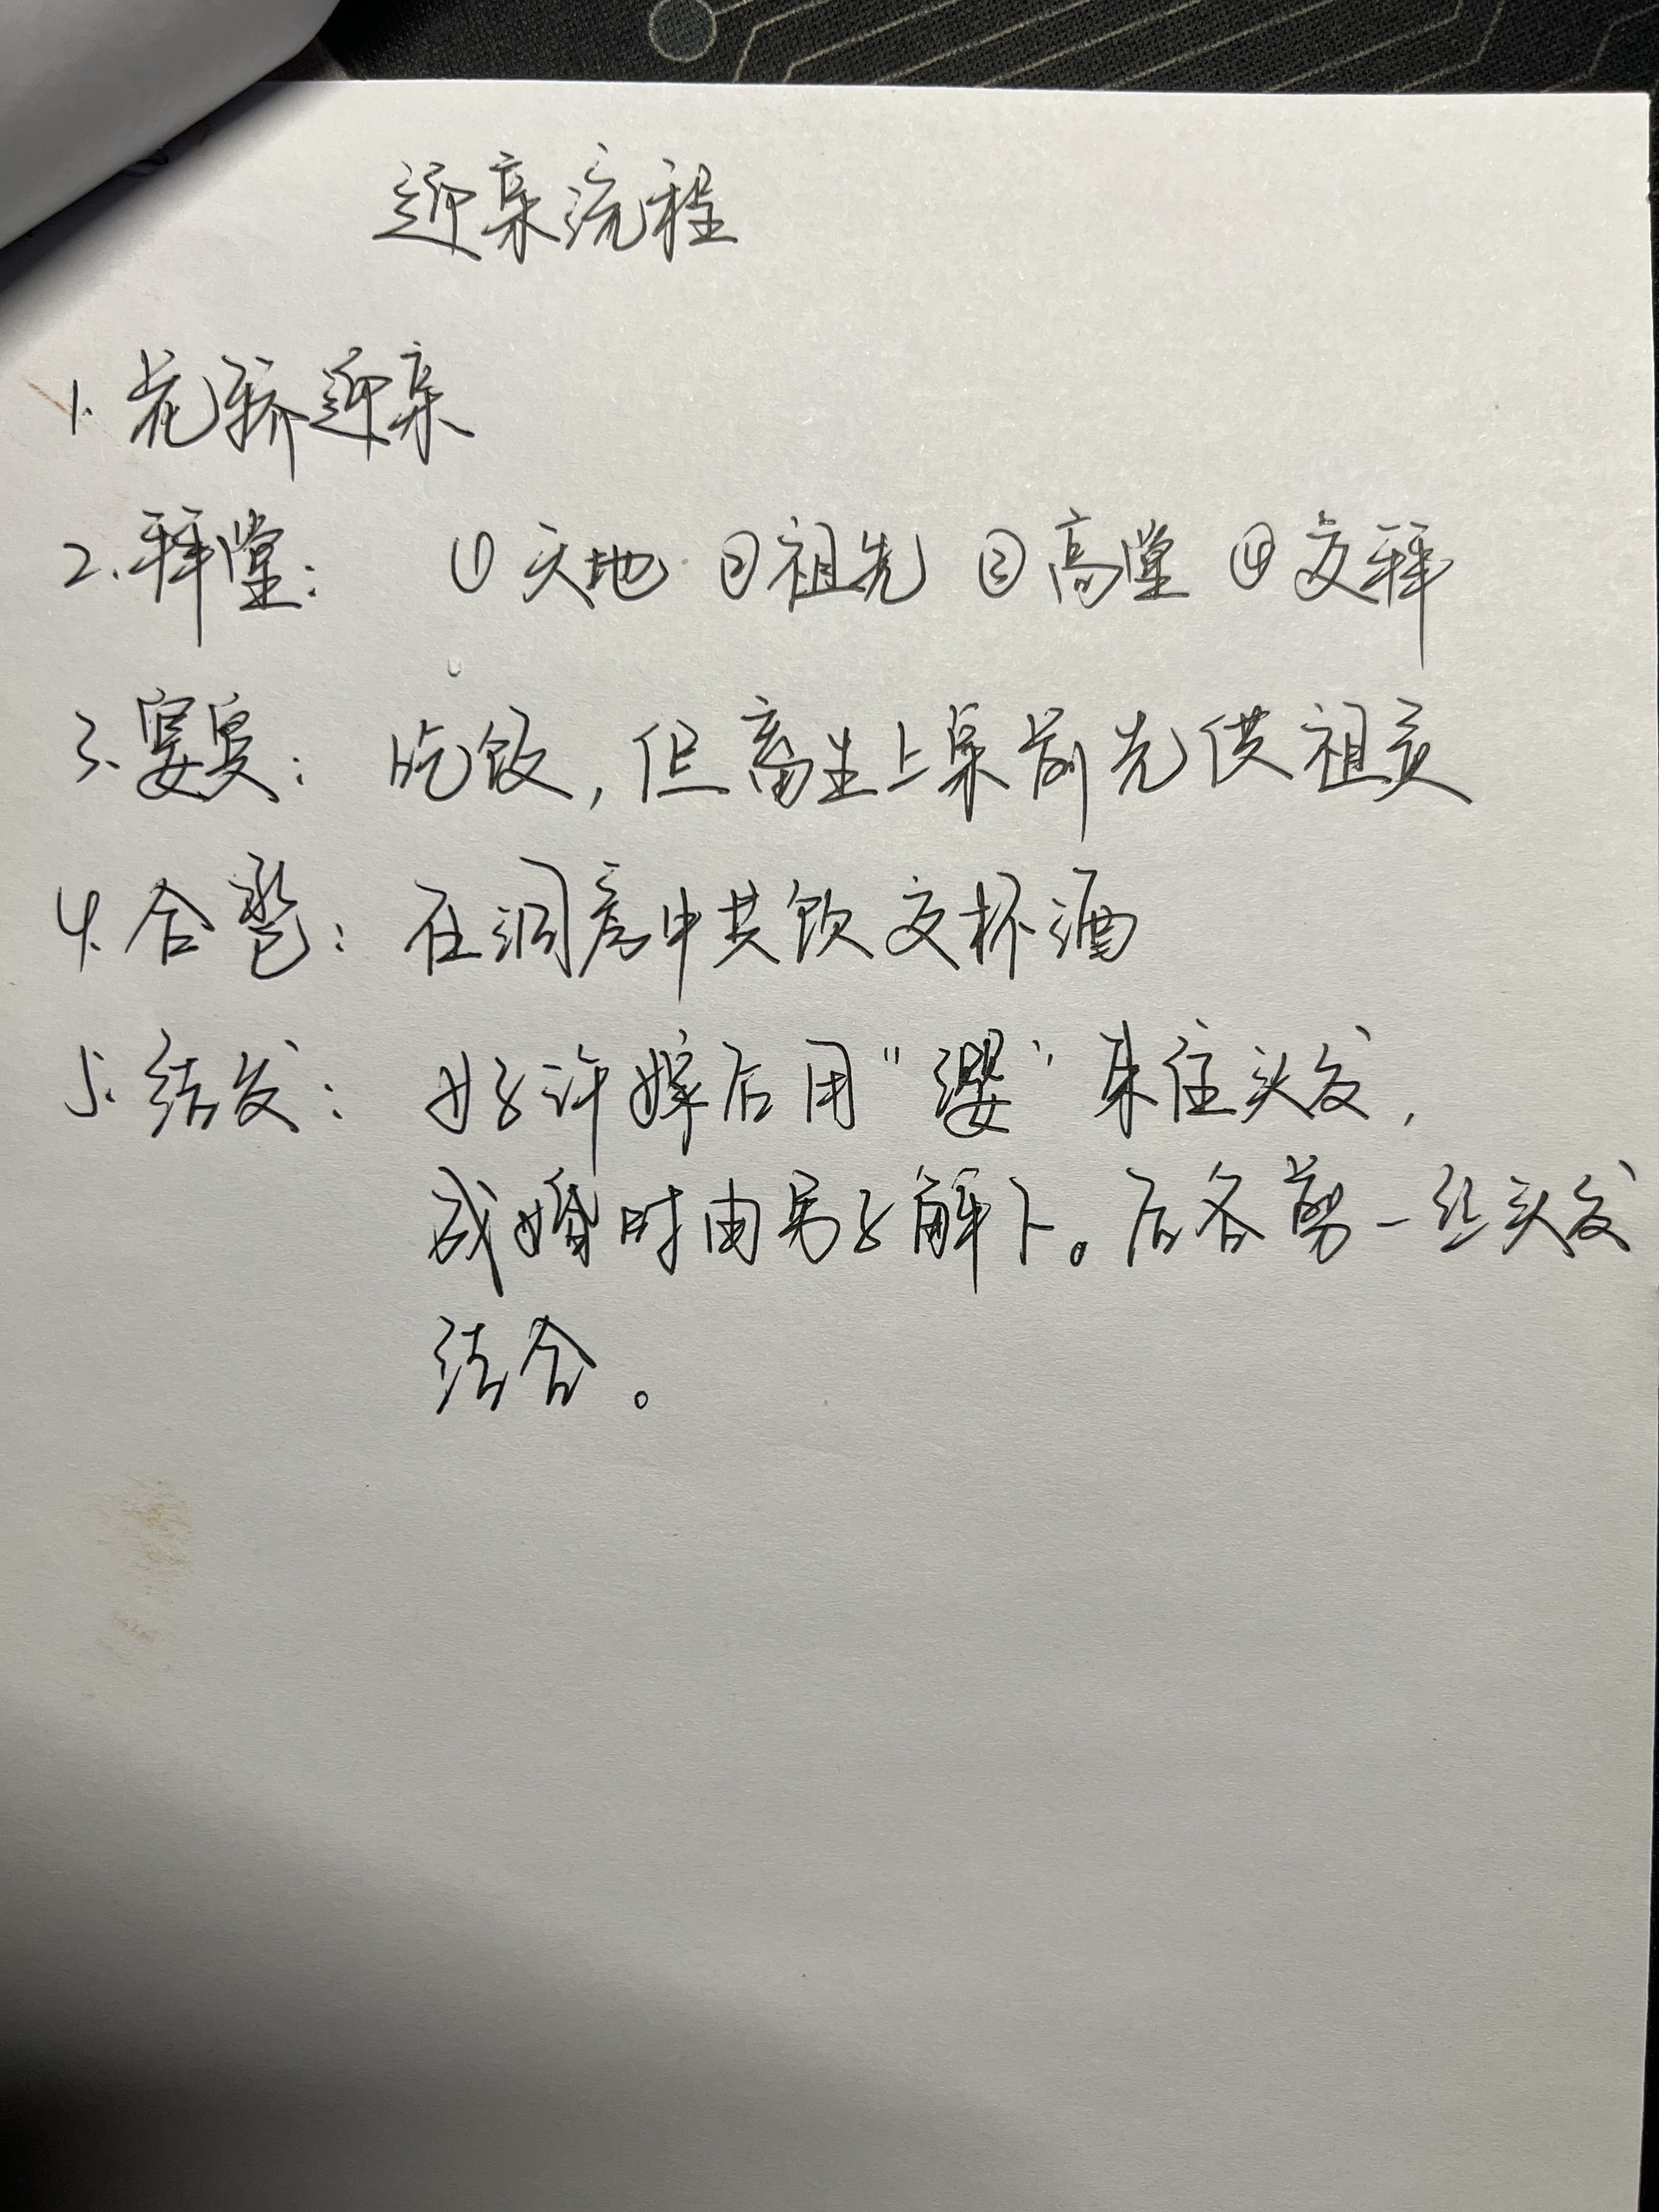 迎亲流程
1. 花轿迎亲
2. 拜堂： ①天地 ②祖先 ③高堂 ④交拜
3. 宴宾： 吃饭，但畜生上桌前先供祖灵
4. 合卺： 在洞房中共饮交杯酒
5. 结发： 女子许嫁后用“缨”束住头发，
成婚时由男子解下。后各剪一丝头发
结合。